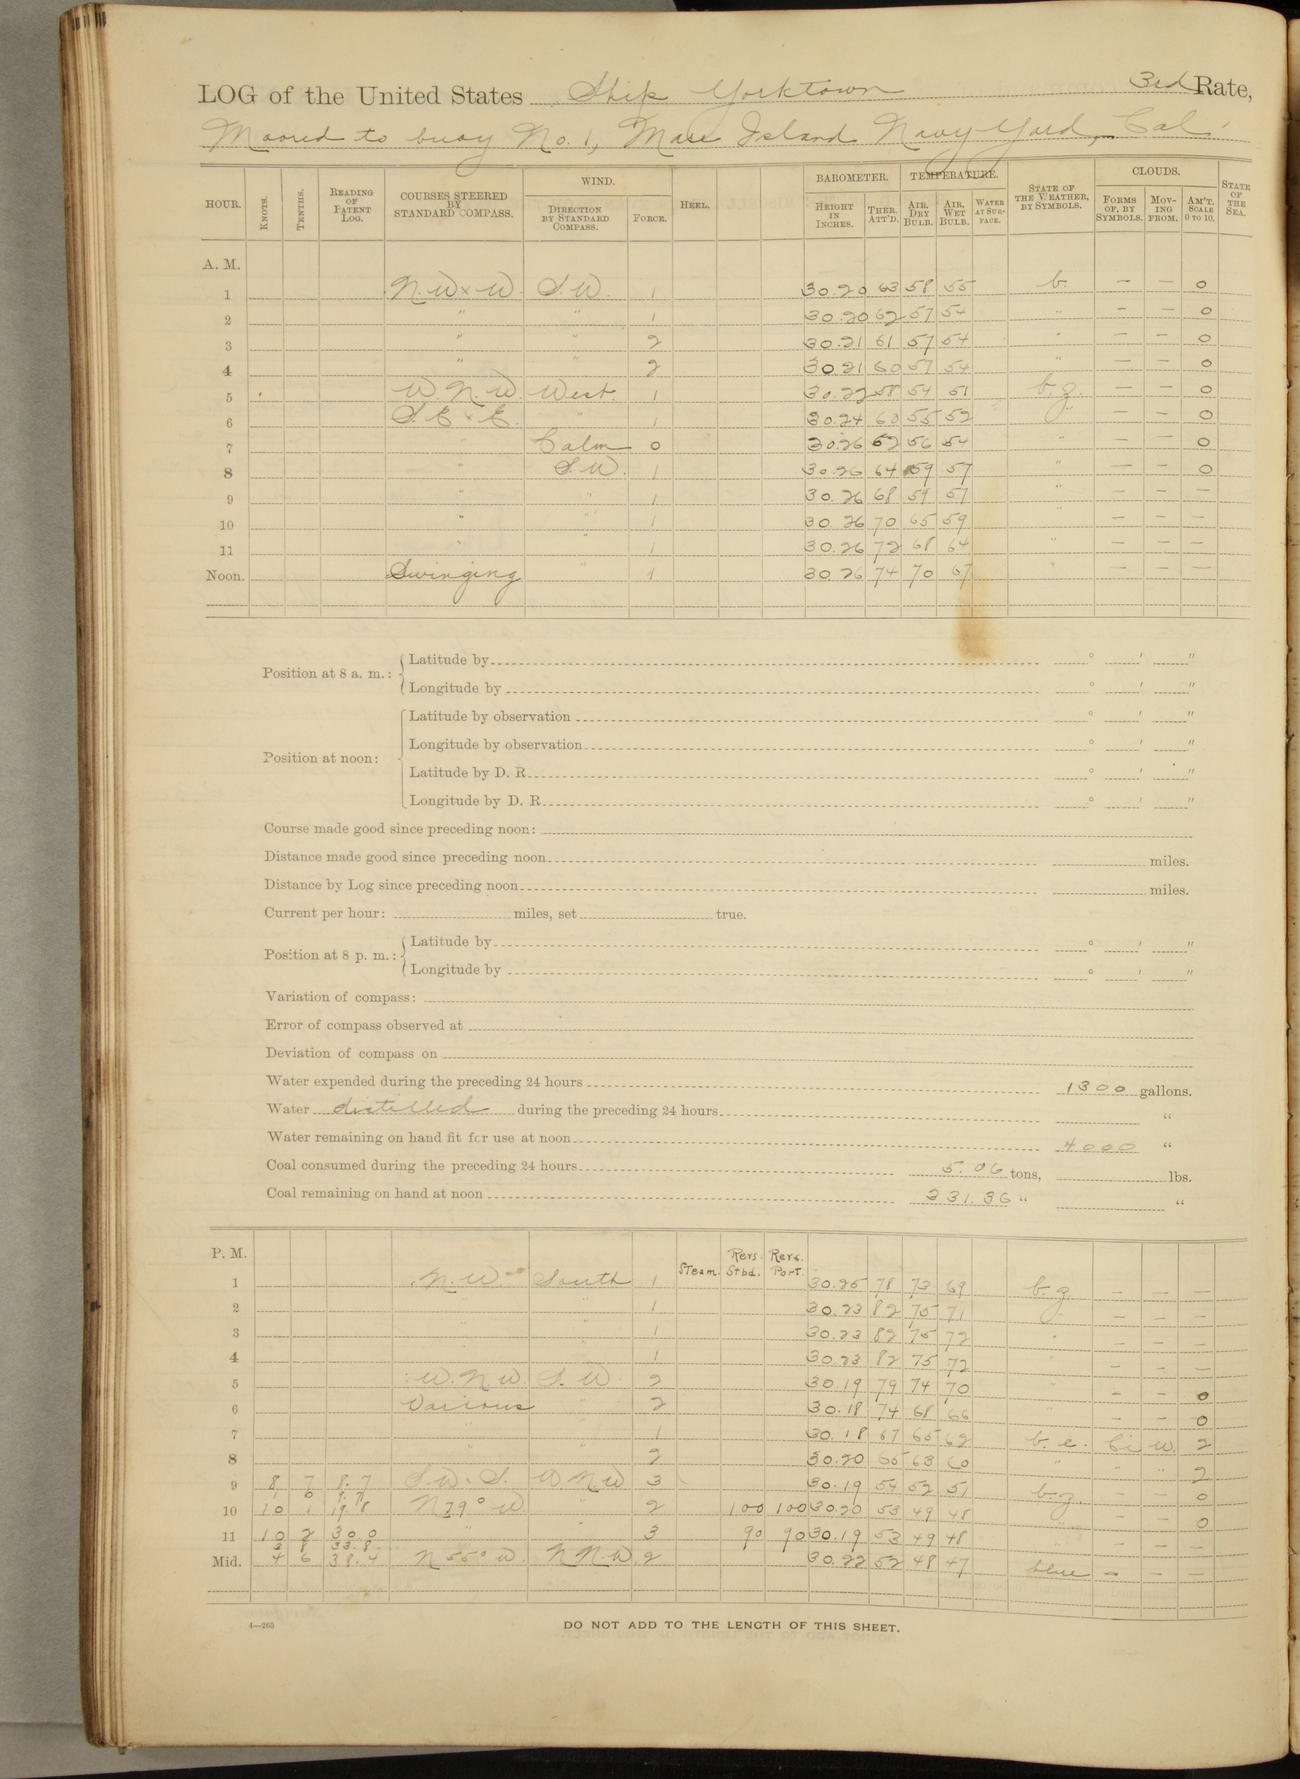 LOG of the United States Ship Yorktown 3rd Rate,
Moored to buoy No. 1, Mare Island Navy Yard, Cal.
HOUR. KNOTS. TENTHS. READING OF PATENT LOG. COURSES STEERED BY STANDARD COMPASS. WIND. DIRECTION BY STANDARD COMPASS. FORCE. HEEL. BAROMETER. HEIGHT IN INCHES. THER. ATT'D. TEMPERATURE. AIR, DRY BULB. AIR, WET BULB. WATER AT SURFACE. STATE OF THE WEATHER, BY SYMBOLS. CLOUDS. FORMS OF, BY SYMBOLS. MOVING FROM. AM'T, SCALE 0 TO 10. STATE OF THE SEA.
A. M.
1 N.W x W S.W. 1 30.20 63 58 55 b. — — 0
2 " " 1 30.20 62 57 54 " — — 0
3 " " 2 30.21 61 57 54 " — — 0
4 " " 2 30.21 60 57 54 " — — 0
5 W.N.W. West. 1 30.22 58 54 51 b.z. — — 0
6 S.E x E. " 1 30.24 60 55 52 " — — 0
7 " Calm 0 30.26 62 56 54 " — — 0
8 " S.W. 1 30.26 64 59 57 " — — 0
9 " " 1 30.26 68 59 57 " — — —
10 " " 1 30.26 70 65 59 " — — —
11 " " 1 30.26 72 68 64 " — — —
Noon. Swinging " 1 30.26 74 70 67 " — — —
Position at 8 a. m.: Latitude by ° ′ ″
Longitude by ° ′ ″
Position at noon: Latitude by observation ° ′ ″
Longitude by observation ° ′ ″
Latitude by D. R. ° ′ ″
Longitude by D. R. ° ′ ″
Course made good since preceding noon:
Distance made good since preceding noon miles.
Distance by Log since preceding noon miles.
Current per hour: miles, set true.
Position at 8 p. m.: Latitude by ° ′ ″
Longitude by ° ′ ″
Variation of compass:
Error of compass observed at
Deviation of compass on
Water expended during the preceding 24 hours 1300 gallons.
Water distilled during the preceding 24 hours “
Water remaining on hand fit for use at noon 4000 “
Coal consumed during the preceding 24 hours 5.06 tons, lbs.
Coal remaining on hand at noon 231.36 “ “
P. M. Steam. Revs Stbd. Revs. Port.
1 N.W. South 1 30.25 78 73 69 b.z. — — —
2 " " 1 30.23 82 75 71 " — — —
3 " " 1 30.23 82 75 72 " — — —
4 " " 1 30.23 82 75 72 " — — —
5 W.N.W. S.W. 2 30.19 79 74 70 " — — 0
6 Various " 2 30.18 74 68 66 " — — 0
7 " " 1 30.18 67 65 62 b.c. Ci W. 2
8 " " 2 30.20 65 63 60 " " " 2
9 8 7 8.7 S.W x S. W.N.W 3 30.19 54 52 51 b.z. — — 0
1 0 9.7
10 10 1 19.8 N 79° W " 2 100 100 30.20 53 49 48 " — — 0
11 10 2 30.0 " " 3 90 90 30.19 53 49 48 — — —
3 8 33.8
Mid. 4 6 38.4 N 55° W. N.N.W. 2 30.22 52 48 47 blue — — —
4—265
DO NOT ADD TO THE LENGTH OF THIS SHEET.